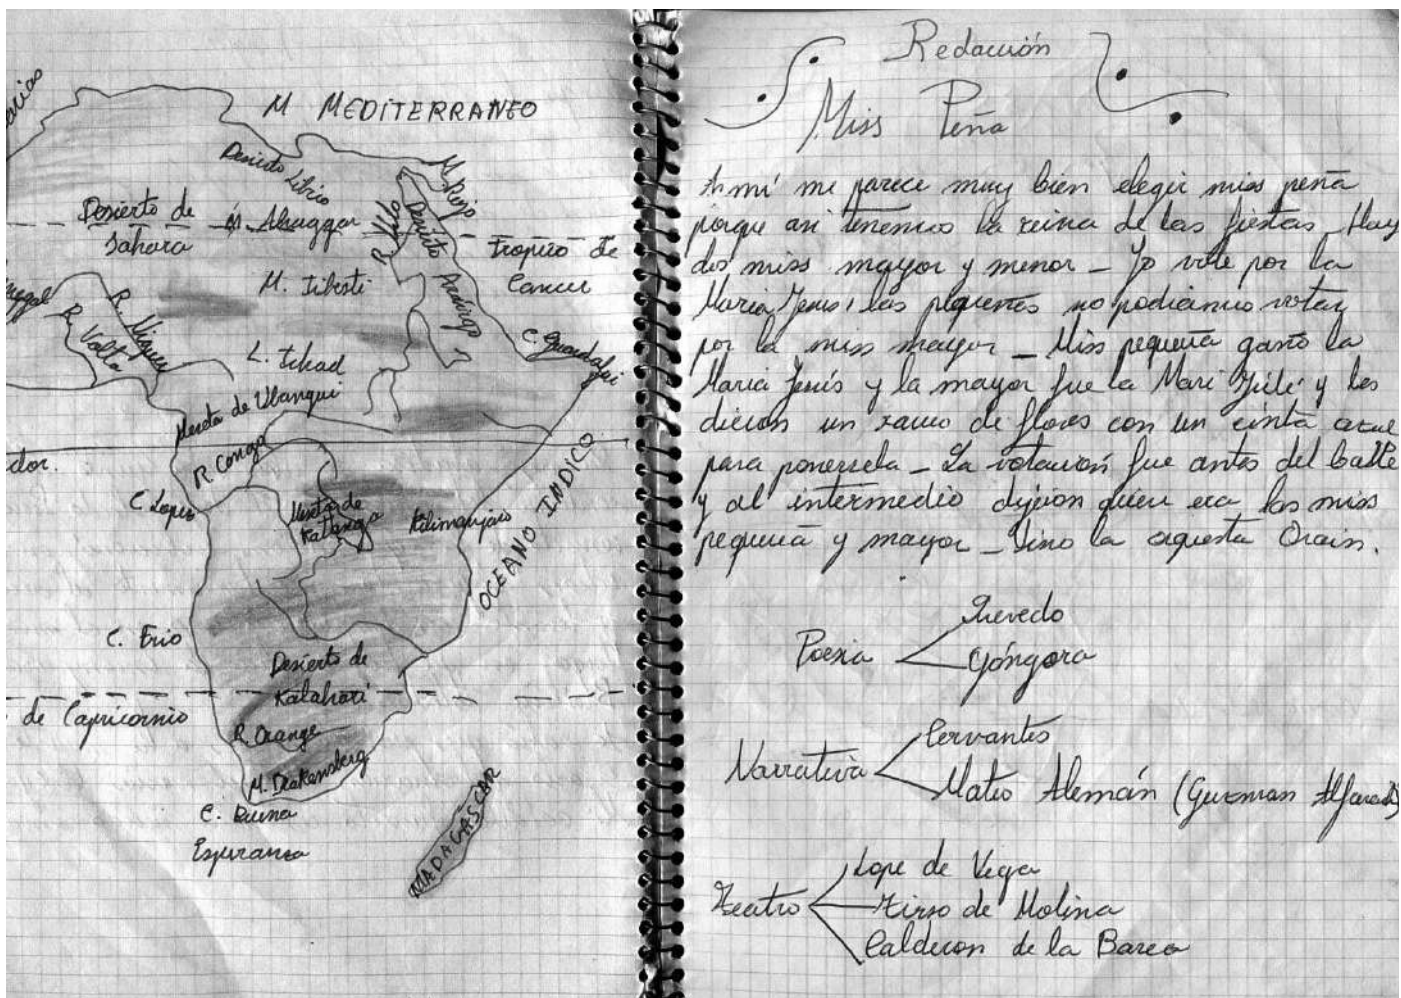 M MEDITERRANEO
Desierto Libio
M. Rojo
Desierto de
Sahara
M. Ahaggar
R. Nilo
Desierto Arábigo
Tropico de
Cancer
M. Tibesti
R. Niger
R. Volta
L. Tchad
C. Guardafui
Meseta de Ubangui
dor.
R. Congo
C. Lopez
Meseta de
Katanga
Kilimanjaro
OCEANO INDICO
C. Frio
Desierto de
Kalahari
de Capricornio
R. Orange
M. Drakensberg
C. Buena
Esperanza
MADAGASCAR
Redacción
Miss Peña
A mí me parece muy bien elegir miss peña
porque asi tenemos la reina de las fiestas. Hay
dos miss mayor y menor - Yo vote por la
Maria Jesus, las pequeñas no podiamos votar
por la miss mayor - Miss pequeña ganó la
Maria Jesús y la mayor fue la Mari y les
dieron un ramo de flores con un cinta azul
para ponersela - La votación fue antes del baile
y al intermedio dijeron quien era las miss
pequeña y mayor - Vino la orquesta
Poesia
Quevedo
Góngora
Narrativa
Cervantes
Mateo Alemán (Guzman Alfarache)
Teatro
Lope de Vega
Tirso de Molina
Calderon de la Barca